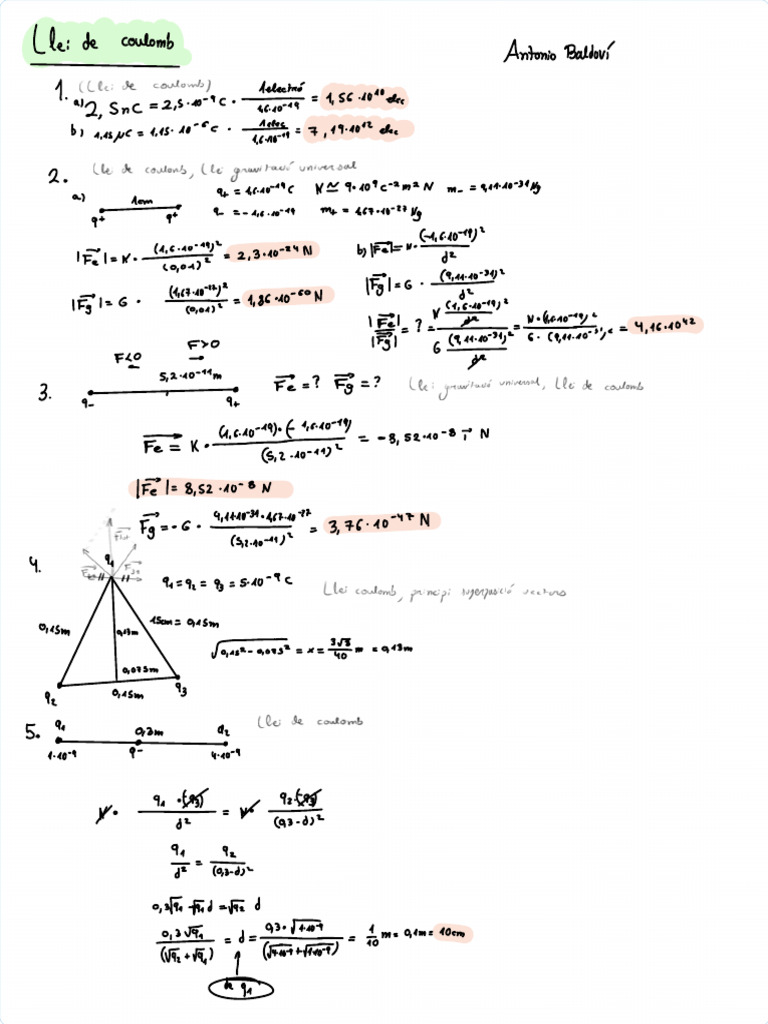 Llei de coulomb
Antonio Baldoví
1. (Llei de coulomb)
a) 2,5nC = 2,5·10⁻⁹C · 1electró / 1,6·10⁻¹⁹ = 1,56·10¹⁰ elec
b) 1,15μC = 1,15·10⁻⁶C · 1elec / 1,6·10⁻¹⁹ = 7,19·10¹² elec
2. Llei de coulomb, Llei gravitació universal
a) 1cm q+ q+
q+ = 1,6·10⁻¹⁹C K ≃ 9·10⁹ C⁻²m²N m- = 9,11·10⁻³¹Kg
q- = -1,6·10⁻¹⁹ m+ = 1,67·10⁻²⁷Kg
|Fe| = K · (1,6·10⁻¹⁹)² / (0,01)² = 2,3·10⁻²⁴ N
|Fg| = G · (1,67·10⁻²⁷)² / (0,01)² = 1,86·10⁻⁶⁰ N
b) |Fe| = K · (-1,6·10⁻¹⁹)² / d²
|Fg| = G · (9,11·10⁻³¹)² / d²
|Fe| / |Fg| = ? = K (1,6·10⁻¹⁹)² / d² / G (9,11·10⁻³¹)² / d² = K·(1,6·10⁻¹⁹)² / G·(9,11·10⁻³¹)² = 4,16·10⁴²
F<0 F>0
3. 5,2·10⁻¹¹m q- q+ Fe = ? Fg = ? Llei gravitació universal, Llei de coulomb
Fe = K · (1,6·10⁻¹⁹)·(-1,6·10⁻¹⁹) / (5,2·10⁻¹¹)² = -8,52·10⁻⁸ i N
|Fe| = 8,52·10⁻⁸ N
Fg = -G · 9,11·10⁻³¹·1,67·10⁻²⁷ / (5,2·10⁻¹¹)² = 3,76·10⁻⁴⁷ N
4. q1
q1 = q2 = q3 = 5·10⁻⁹ C
Llei coulomb, principi superposició vectors
0,15m 0,13m 15cm = 0,15m
√0,15² - 0,075² = x = 3√3 / 40 m = 0,13m
0,075m
q2 0,15m q3
5. q1 0,3m q2 Llei de coulomb
1·10⁻⁹ q- 4·10⁻⁹
K · q1·(-q3) / d² = K · q2·(-q3) / (0,3-d)²
q1 / d² = q2 / (0,3-d)²
0,3√q1 - √q1 d = √q2 d
0,3√q1 / (√q2 + √q1) = d = 0,3·√1·10⁻⁹ / (√4·10⁻⁹ + √1·10⁻⁹) = 1/10 m = 0,1m = 10cm
de q1